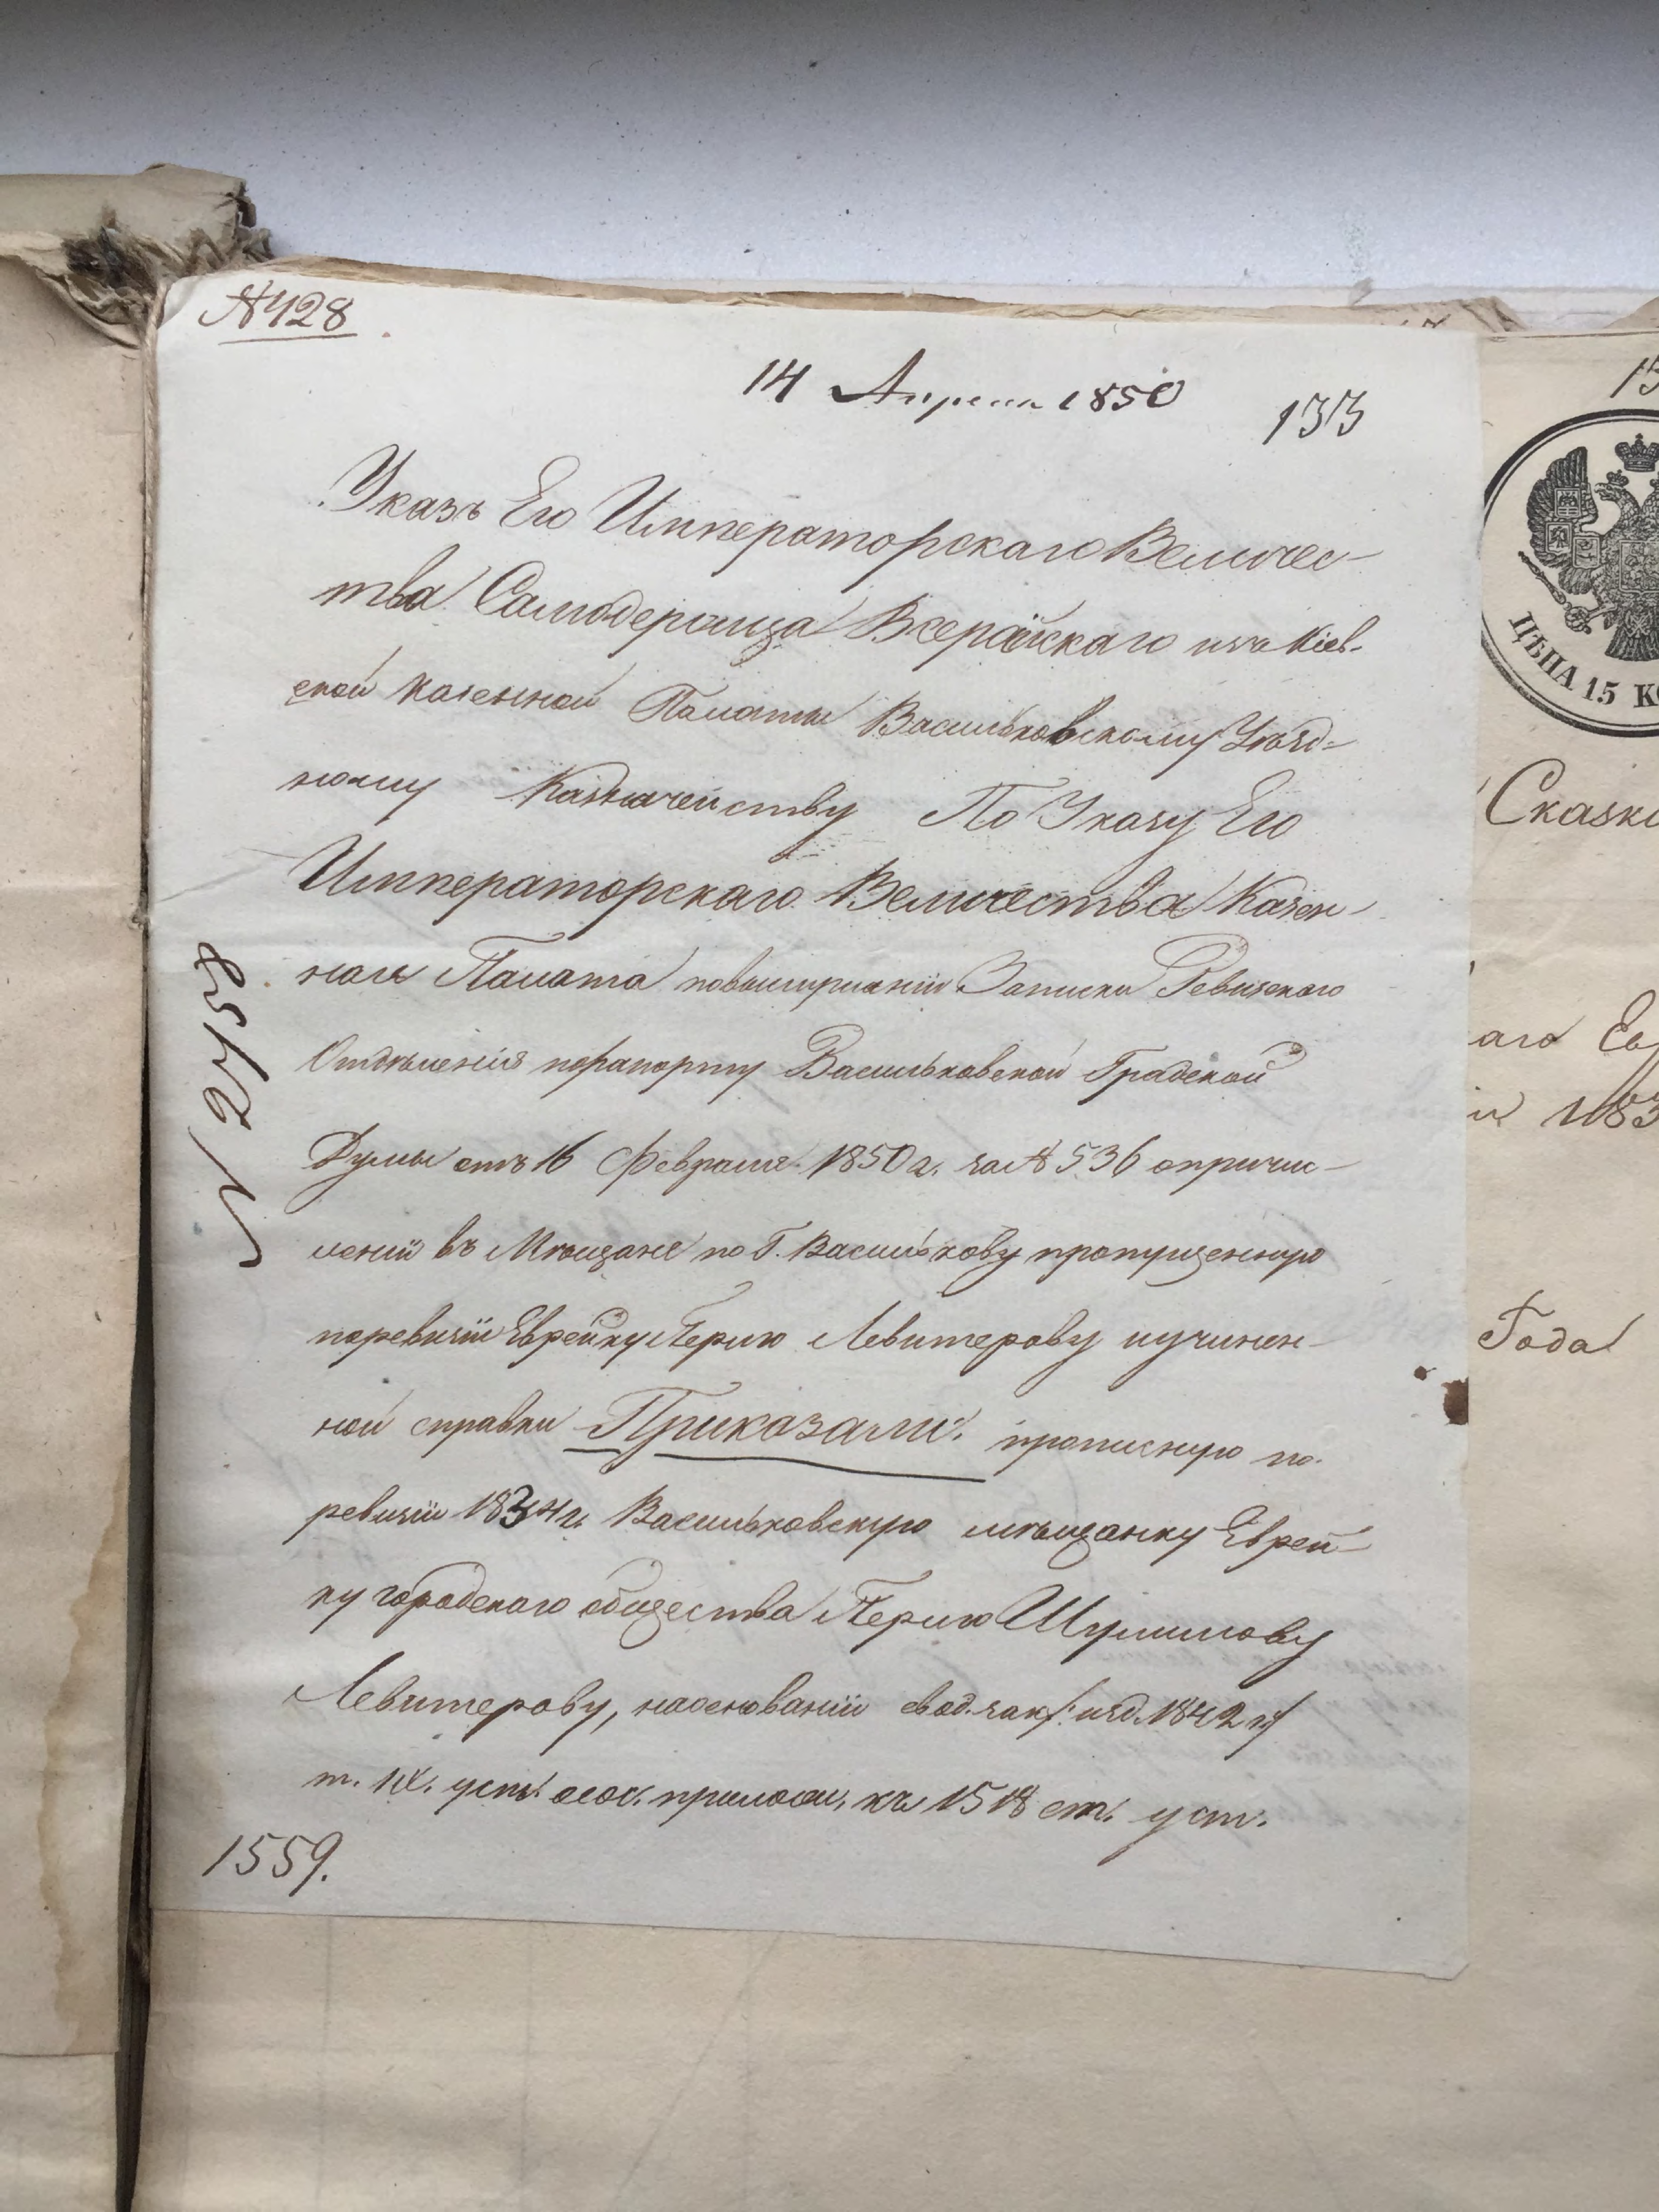 №428
14 Апреля 1850
133
Указъ Его Императорскаго Величес-
тва Самодержца Всеросійскаго изъ Кіев-
ской Казенной Палаты Васильковскому Уѣзд-
ному Казначейству По Указу Его
Императорскаго Величества Казен-
ная Палата по выслушаніи Записки Ревизскаго
Отдѣленія по рапорту Васильковской Градской
Думы отъ 16 Февраля 1850 г. за № 536 о причис-
леніи въ Мѣщане по Г. Василькову пропущенную
по ревизіи Еврейку Перлю Левитерову и учинен-
ной справки Приказали: прописную по
ревизіи 1834 г. Васильковскую мѣщанку Еврей-
ку городскаго общества Перлю Шулимову
Левитерову, на основаніи свод. зак /: изд. 1842 г :/
т. IX. уст. о сос. прилож. къ 1518 ст. уст.
1559.
№ 2758
15
ЦѢНА 15 КО
Сказк
аго Ев
Года